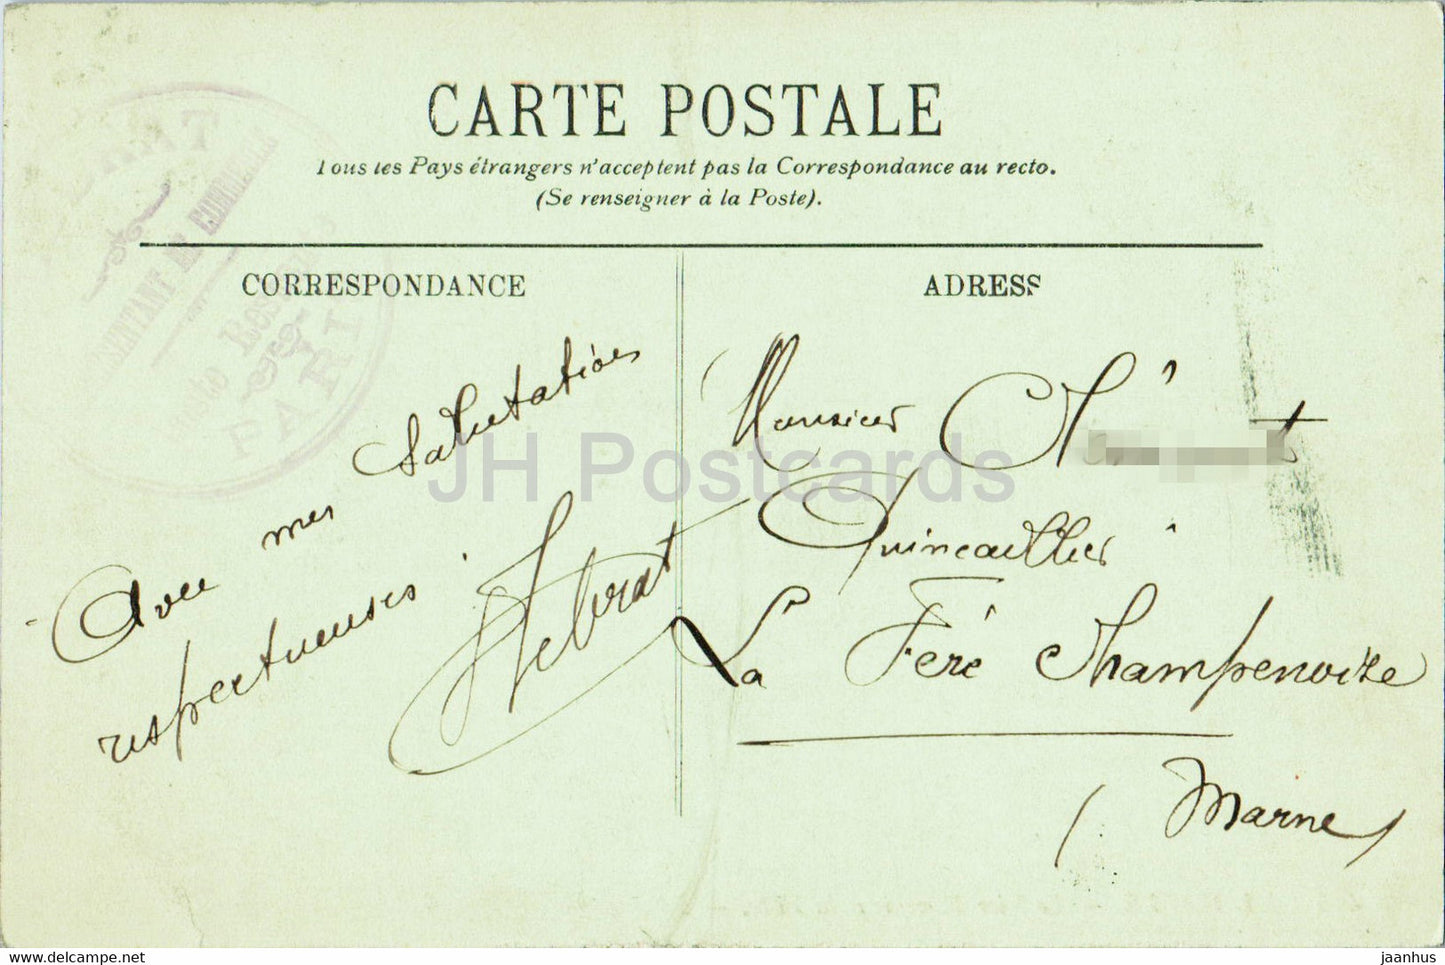 CARTE POSTALE
Tous les Pays étrangers n'acceptent pas la Correspondance au recto.
(Se renseigner à la Poste).
CORRESPONDANCE
ADRESS
Avec mes Salutations
respectueuses
Monsieur
Quincaillier
La Fère Champenoize
(Marne)
PARIS
JH Postcards
www.delcampe.net
jaanhus